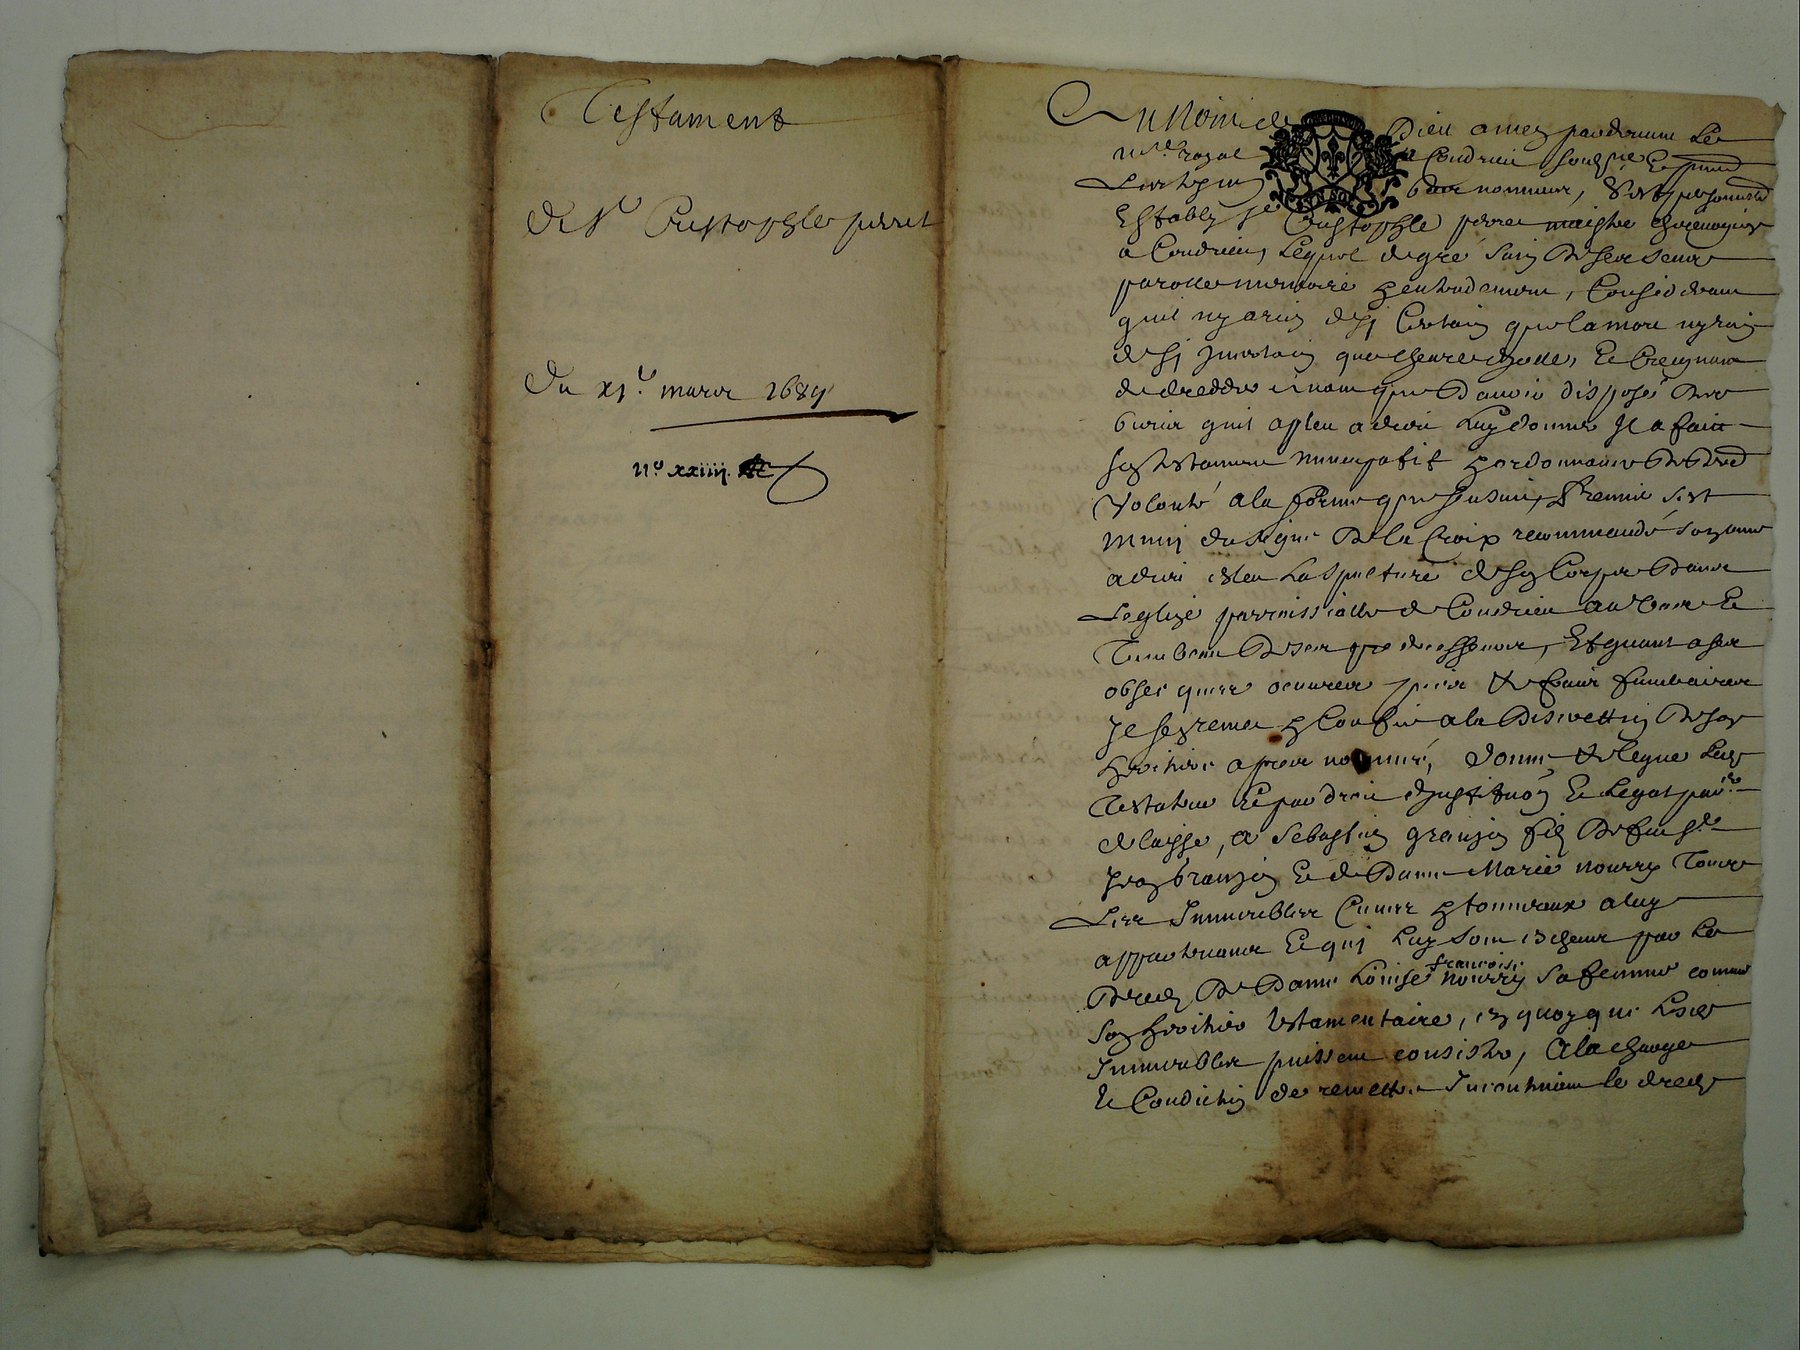 Testament
de Sr Cristophle perret
du xje mars 1689
n.o xxiiij
Au Nom de Dieu amen pardevant Le
nre royal a Condrieu soubzne Et pnts
Les tesmoins bas nommes, S'est personnelt
Estably sr Cristophle perret maistre chirurgien
a Condrieu, Lequel de gré sain De ses sens
parolle memoire & entendement, Considerant
quil ny a rien de sy Certain que la mort ny rien
de sy Incertain que lheure dicelle, Et Creignant
de deceder avant que D'avoir disposé Des
biens quil a pleu a dieu Luy donner Il a faict
son testament nuncupatif & ordonnance De Dere
Volonté a la forme que sensuit, Premier s'est
muny du signe De la Croix recommandé son ame
a dieu esleu La sepulture de son Corps Dans
Leglize parroissialle de Condrieu au Vas Et
Tumbeau De ses predecesseurs, Et quant a ses
obseques oeuvres pies & frais funeraires
Il sen remet & Confie a la Discretion De son
heritier apres nommé, donne & legue Ledt
Testateur Et par droit d'institution Et Legat parer
delaisse, a Sebastien granjon filz De feu sr
Jean Granjon Et de Dame Marie nourry Tous
Les Immeubles Cuves & tonneaux a luy
appartenant Et qui Luy sont escheus par Le
Deces De Dame Louise françoise nourry sa femme comme
son heritier testamentaire, en quoy que Lesds
Immeubles puissent consister, A la charge
Et Condition de remettre Incontinent le deces